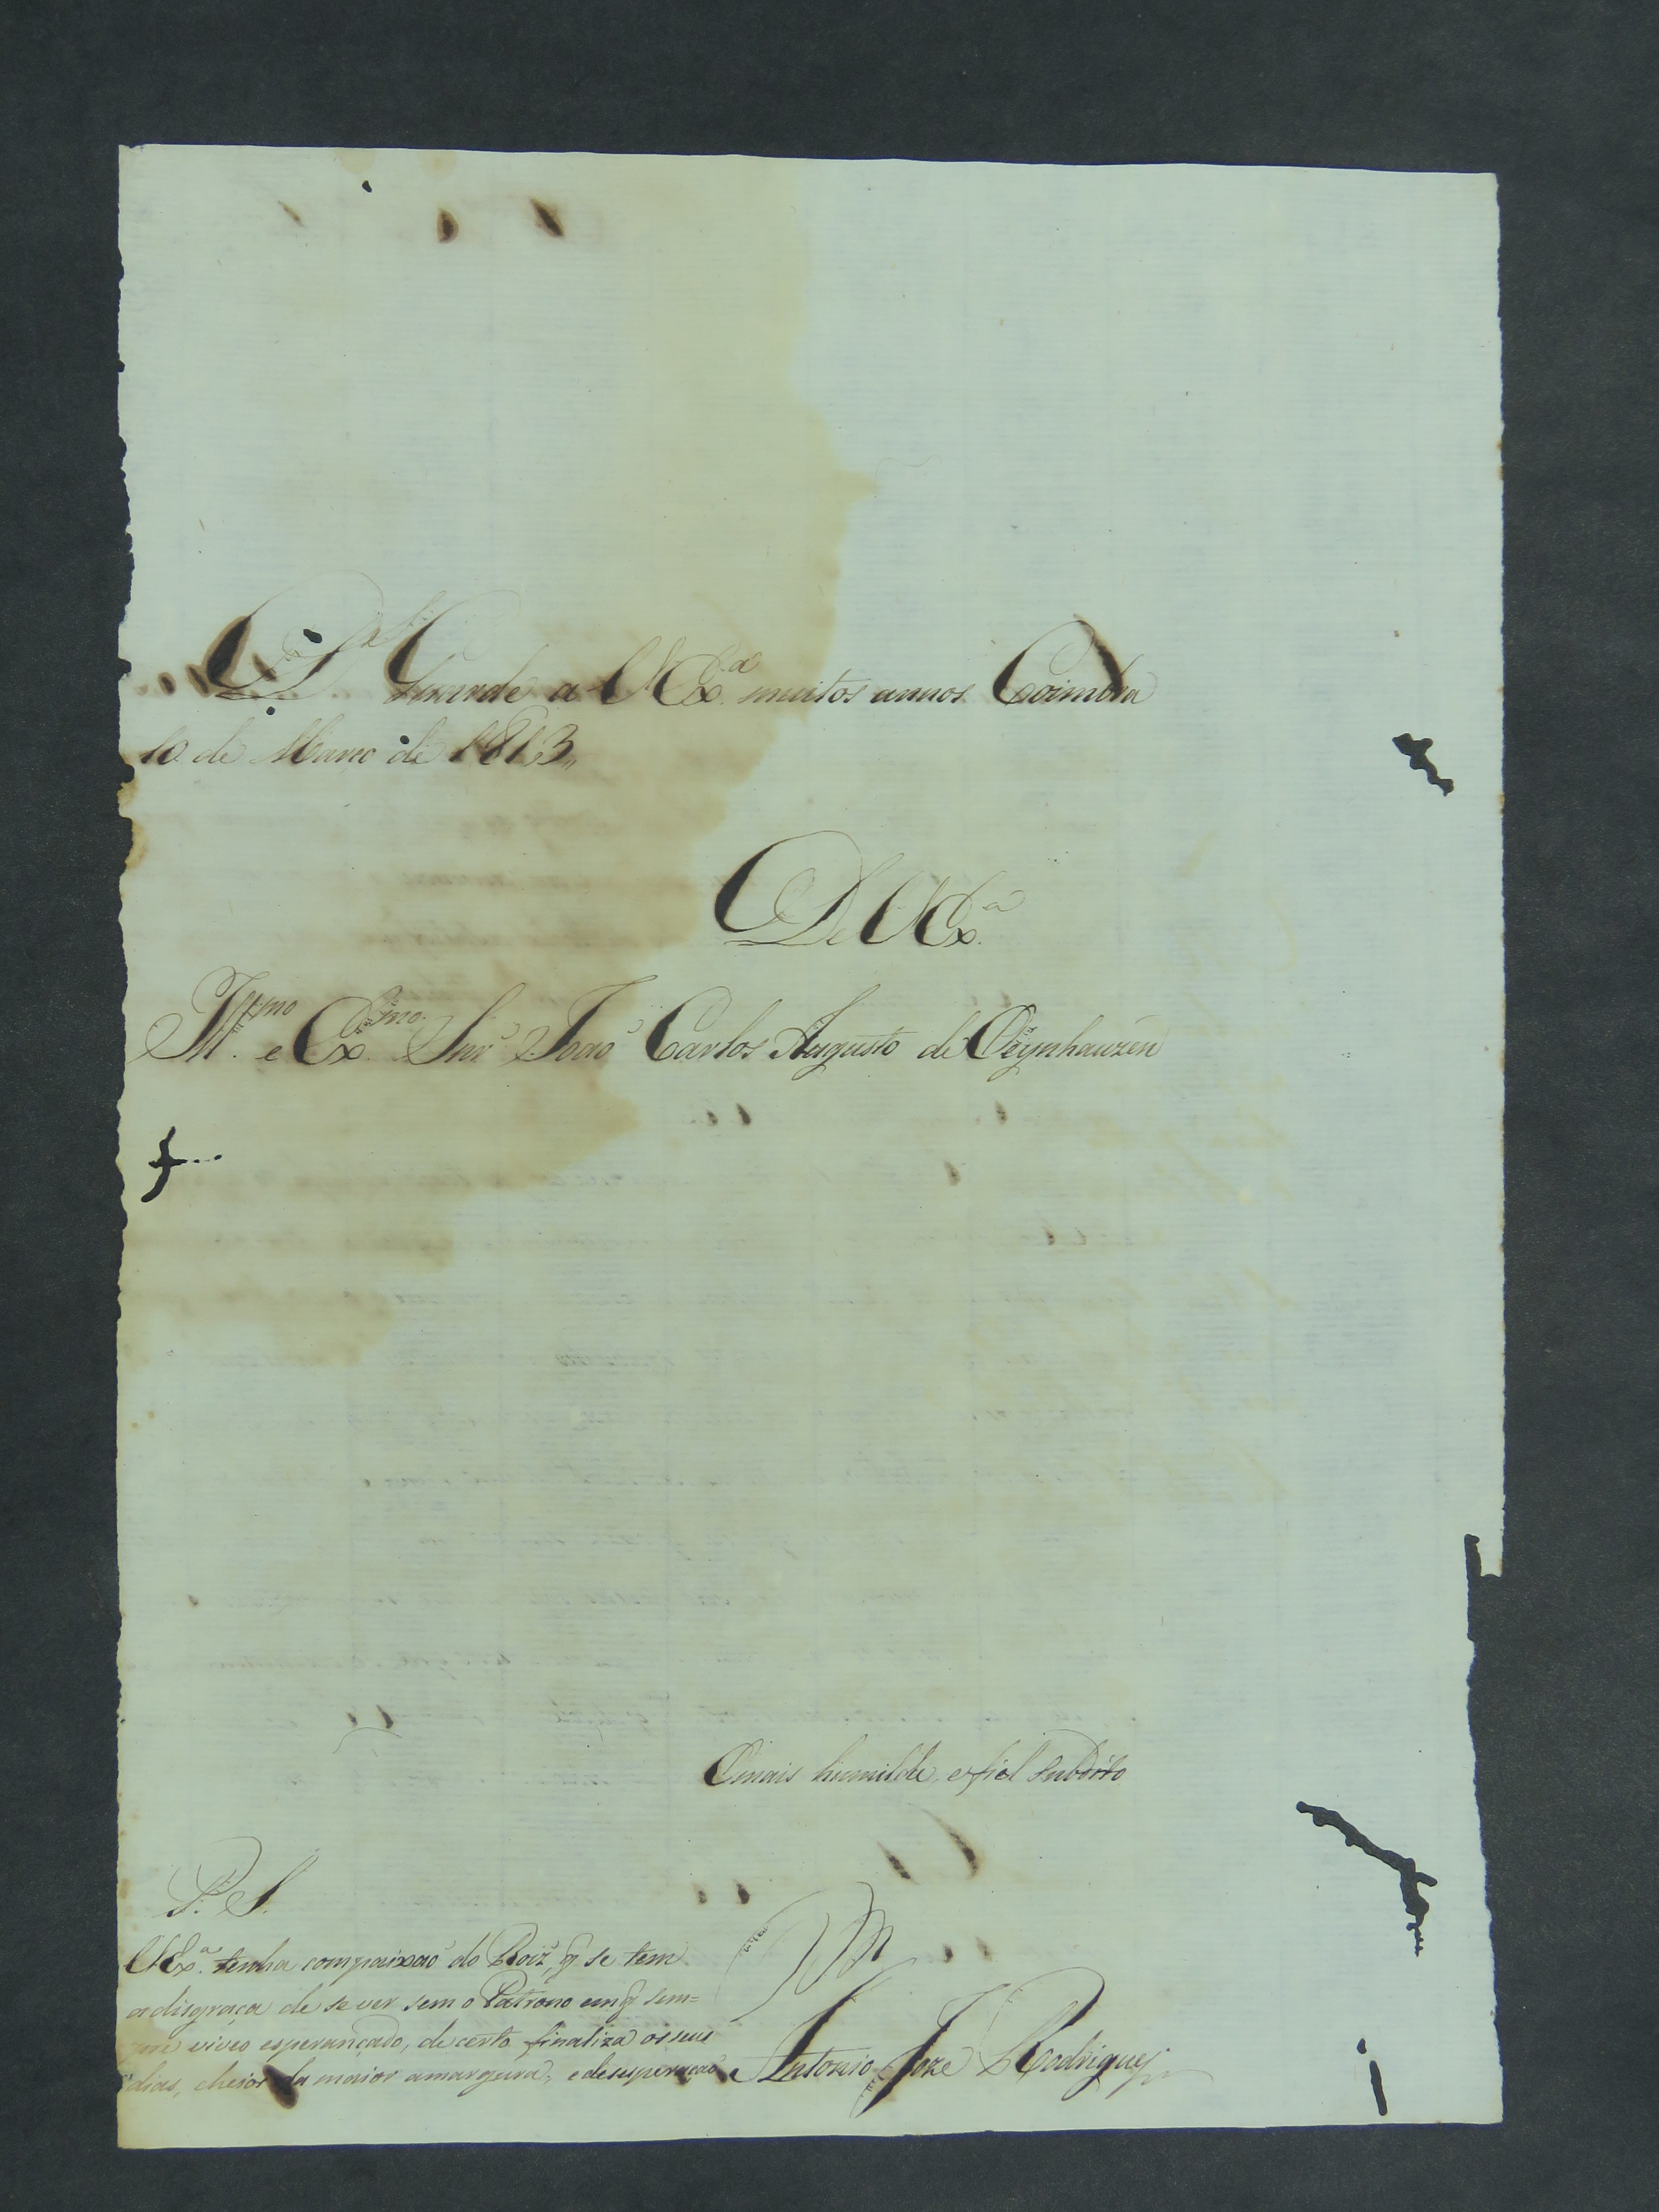 D.s Guarde a V Ex.a muitos annos Coimbra
10 de Março de 1813,,
De V Ex.a
Ill.mo e Ex.mo Snr.' Joaõ Carlos Augusto de Oeynhauzen
O mais humilde, e fiel subdito
P. S.
V Ex.a tenha compaixaõ do Roiz', q̃ se tem
a disgraça de se ver sem o Patrono em q̃ sem=
pre viveo esperançado, de certo finaliza os seus
dias, cheios da maior amargura, e desesperaçaõ
Antonio Joze Rodrigues